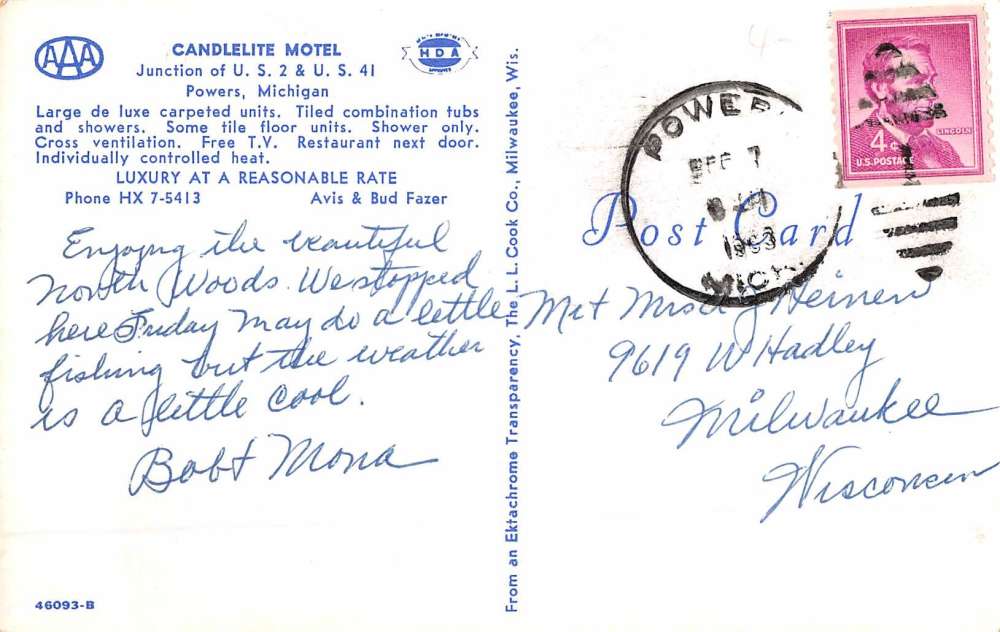 AAA
CANDLELITE MOTEL
HDA
Junction of U. S. 2 & U. S. 41
Powers, Michigan
Large de luxe carpeted units. Tiled combination tubs
and showers. Some tile floor units. Shower only.
Cross ventilation. Free T.V. Restaurant next door.
Individually controlled heat.
LUXURY AT A REASONABLE RATE
Phone HX 7-5413 Avis & Bud Fazer
Enjoying the beautiful
North Woods. We stopped
here Friday May do a little
fishing but the weather
is a little cool.
Bob & Mona
46093-B
From an Ektachrome Transparency, The L. L. Cook Co., Milwaukee, Wis.
POWERS
7
1963
MICH.
4¢
LINCOLN
U.S. POSTAGE
Post Card
Mr & Mrs J Heinen
9619 W Hadley
Milwaukee
Wisconsin